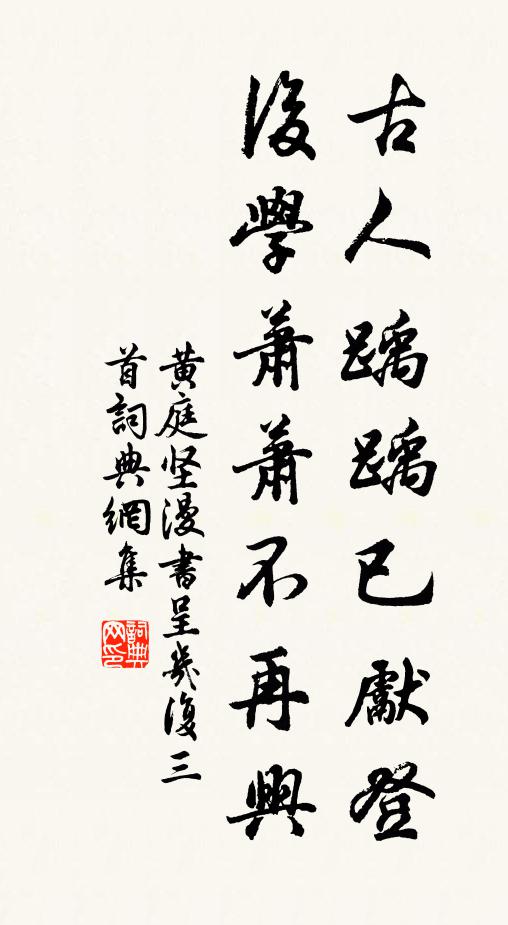 古人踽踽已獻登
後學蕭蕭不再興
黄庭坚漫書呈幾復三
首詞典網集
詞典
网印